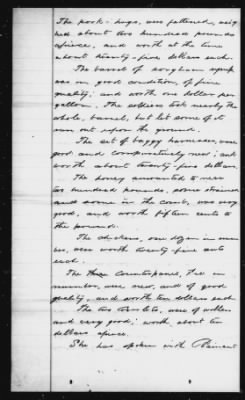 The pork-hogs, were fattened, weig
hed about two hundred pounds
apiece, and worth at the time
about twenty-five dollars each.
The barrel of sorghum syrup
was in good condition, of fine
quality; and worth one dollar per
gallon. The soldiers took nearly the
whole, barrel, but let some of it
run out upon the ground.
The set of buggy harness, were
good and comparatively new; and
worth about twenty-five dollars.
The honey amounted to near
two hundred pounds, some strained
and some in the comb, was very
good, and worth fifteen cents to
the pound.
The chickens, one dozen in num
ber, were worth twenty five cents
each.
The three counterpanes, three in
number, were new, and of good
quality, and worth ten dollars each
The two coverlets, were of
and very good; worth about ten
dollars apiece.
She has spoken with